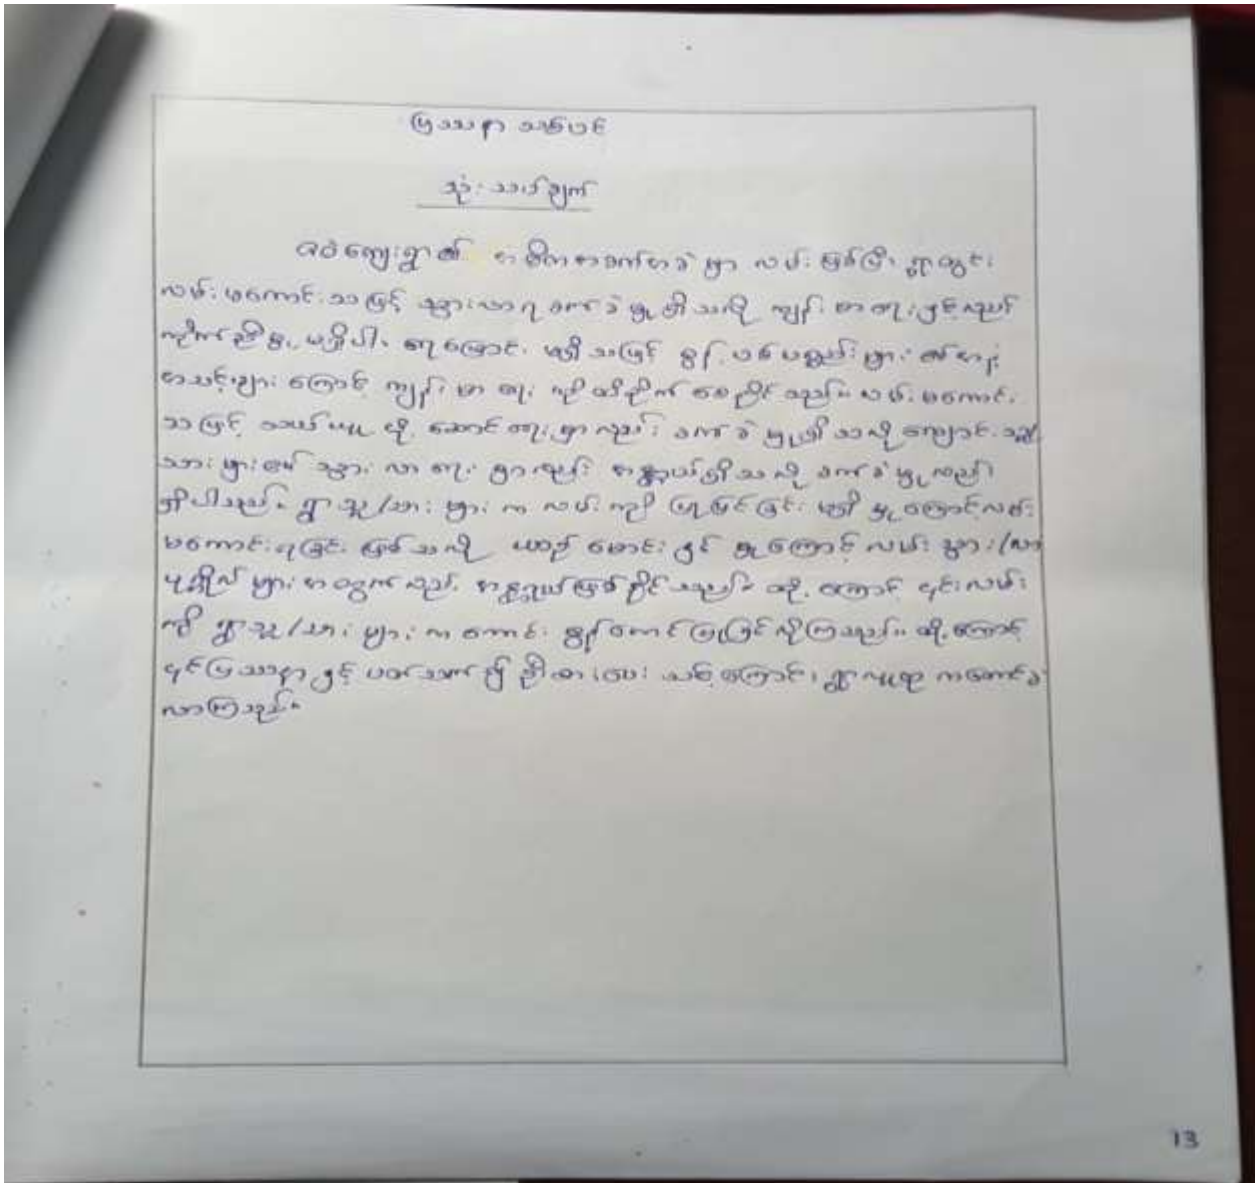 ပြဿနာ သစ်ပင်
သုံးသပ်ချက်
ကျေးရွာ၏ အဓိကအခက်အခဲမှာ လမ်းဖြစ်ပြီး ရွာတွင်း
လမ်းမကောင်းသဖြင့် သွားလာရခက်ခဲမှုရှိသလို ကျန်းမာရေးနှင့်လည်း
ကိုက်ညီမှု မရှိပါ။ ရေမြောင်း မရှိသဖြင့် စွန့်ပစ်ပစ္စည်းများ၏ အနံ့
အသင့်များကြောင့် ကျန်းမာရေး ကို ထိခိုက်စေနိုင်သည်။ လမ်းမကောင်း
သဖြင့် သယ်ယူပို့ဆောင်ရေးမှာလည်း ခက်ခဲမှုရှိသလို ကျောင်းသူ/
သားများ၏ သွားလာရေးမှာလည်း အန္တရာယ်ရှိသလို ခက်ခဲမှုလည်း
ရှိပါသည်။ ရွာသူ/သားများက လမ်းကို ပြုပြင်ခြင်း မရှိမှုကြောင့် လမ်း
မကောင်းရခြင်း ဖြစ်သလို ယာဉ်မောင်းနှင်မှုကြောင့် လမ်းသွား/လာ
ပုဂ္ဂိုလ်များအတွက်လည်း အန္တရာယ်ဖြစ်နိုင်သည်။ ထို့ကြောင့် ၎င်းလမ်း
ကို ရွာသူ/သားများက ကောင်းမွန်အောင်ပြုပြင်လိုကြသည်။ ထို့ကြောင့်
၎င်းပြဿနာနှင့် ပတ်သက်၍ ဦးစားပေးသင့်ကြောင်း ရွာလူထုက
လာကြသည်။